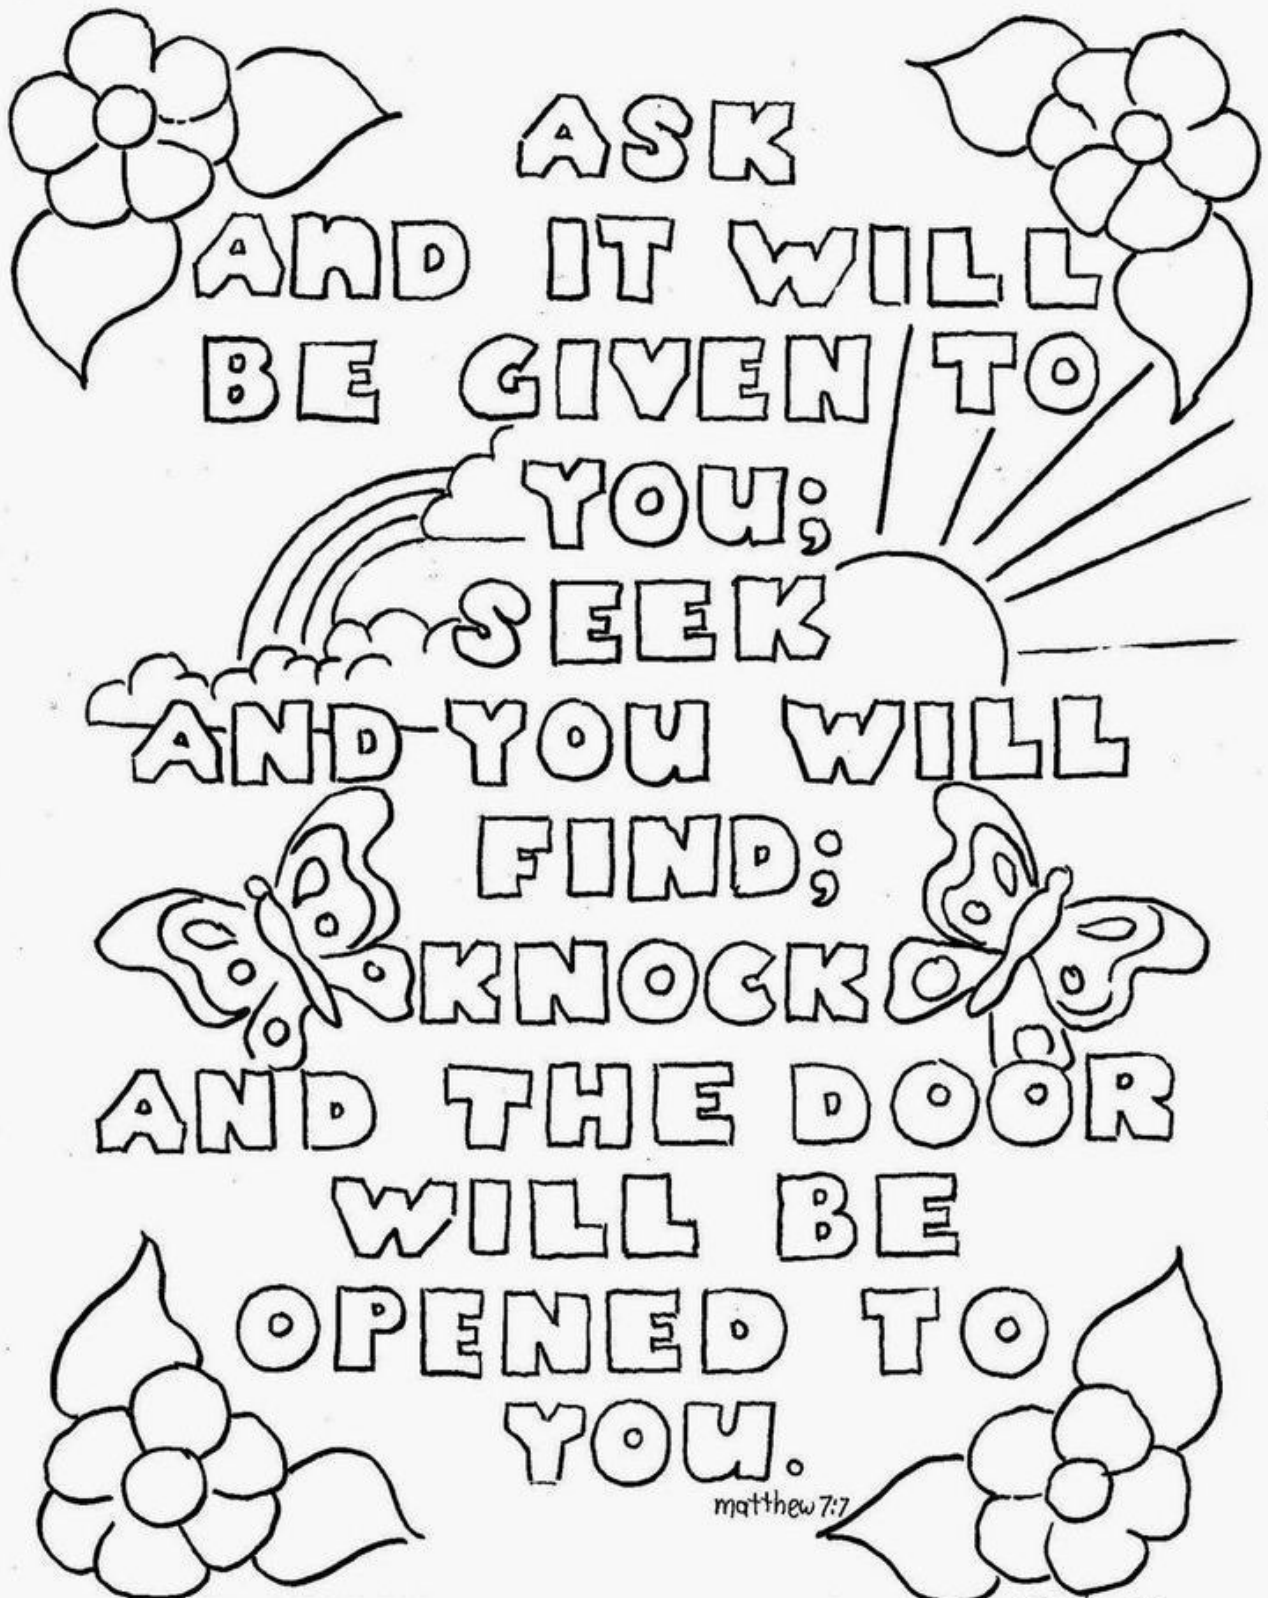 ASK
AND IT WILL
BE GIVEN TO
YOU;
SEEK
AND YOU WILL
FIND;
KNOCK
AND THE DOOR
WILL BE
OPENED TO
YOU.
matthew 7:7